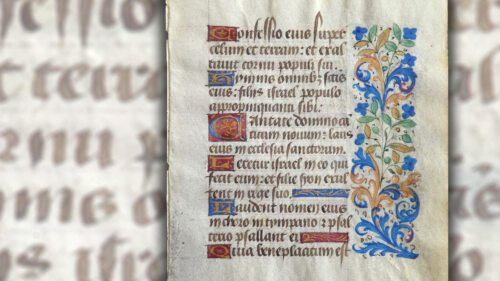 Confessio eius super
celum et terram: et exal
tauit cornu populi sui.
Himnis omnibus sctis
eius: filiis israel populo
appropinquanti sibi.
Cantate domino ca
ticum nouum: laus
eius in ecclesia sanctorum.
Letetur israel in eo qui
fecit eum: et filie syon exul
tent in rege suo.
Laudent nomen eius
in choro in tympano et psal
terio psallant ei
Quia beneplacitum est